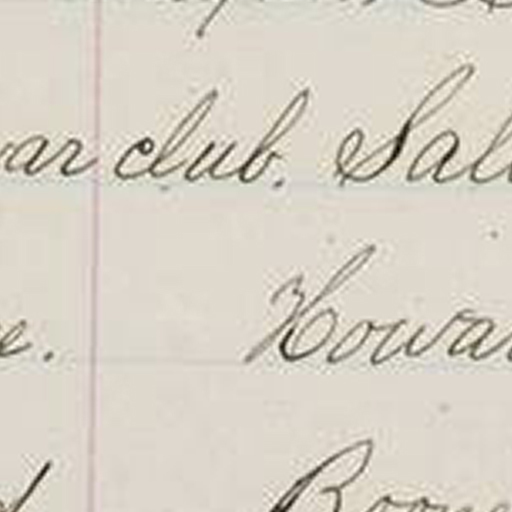 war club. Sal
e. Howar
d Boone